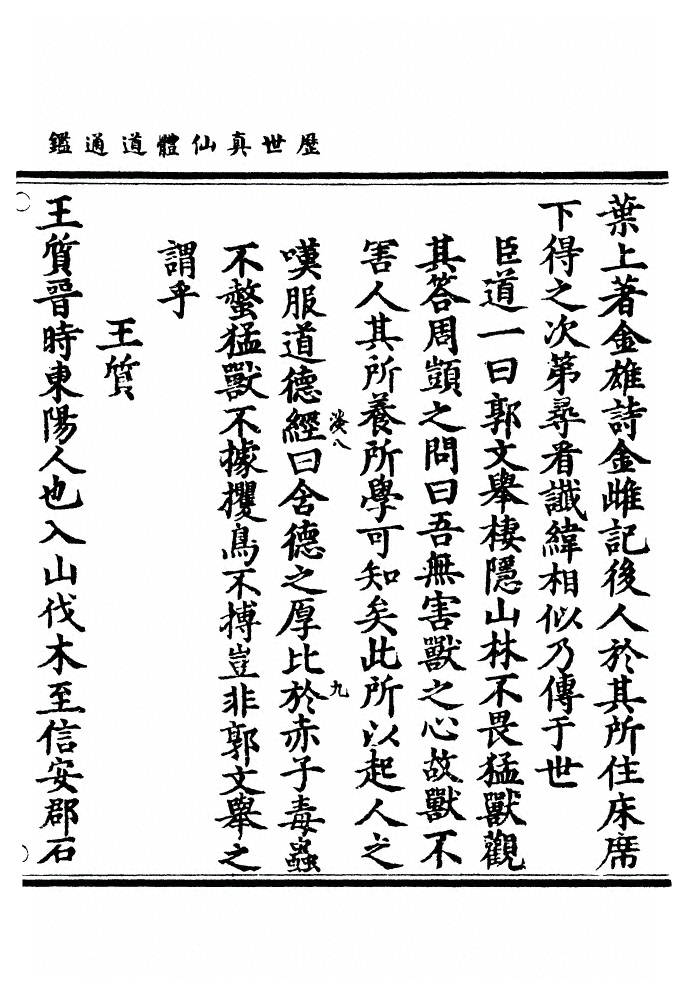 歷世真仙體道通鑑
葉上著金雄詩金雌記後人於其所住床席
下得之次第尋看讖緯相似乃傳于世
臣道一曰郭文舉棲隱山林不畏猛獸觀
其答周顗之問曰吾無害獸之心故獸不
害人其所養所學可知矣此所以起人之
淡八
九
嘆服道德經曰含德之厚比於赤子毒蟲
不螫猛獸不據攫鳥不搏豈非郭文舉之
謂乎
王質
王質晉時東陽人也入山伐木至信安郡石